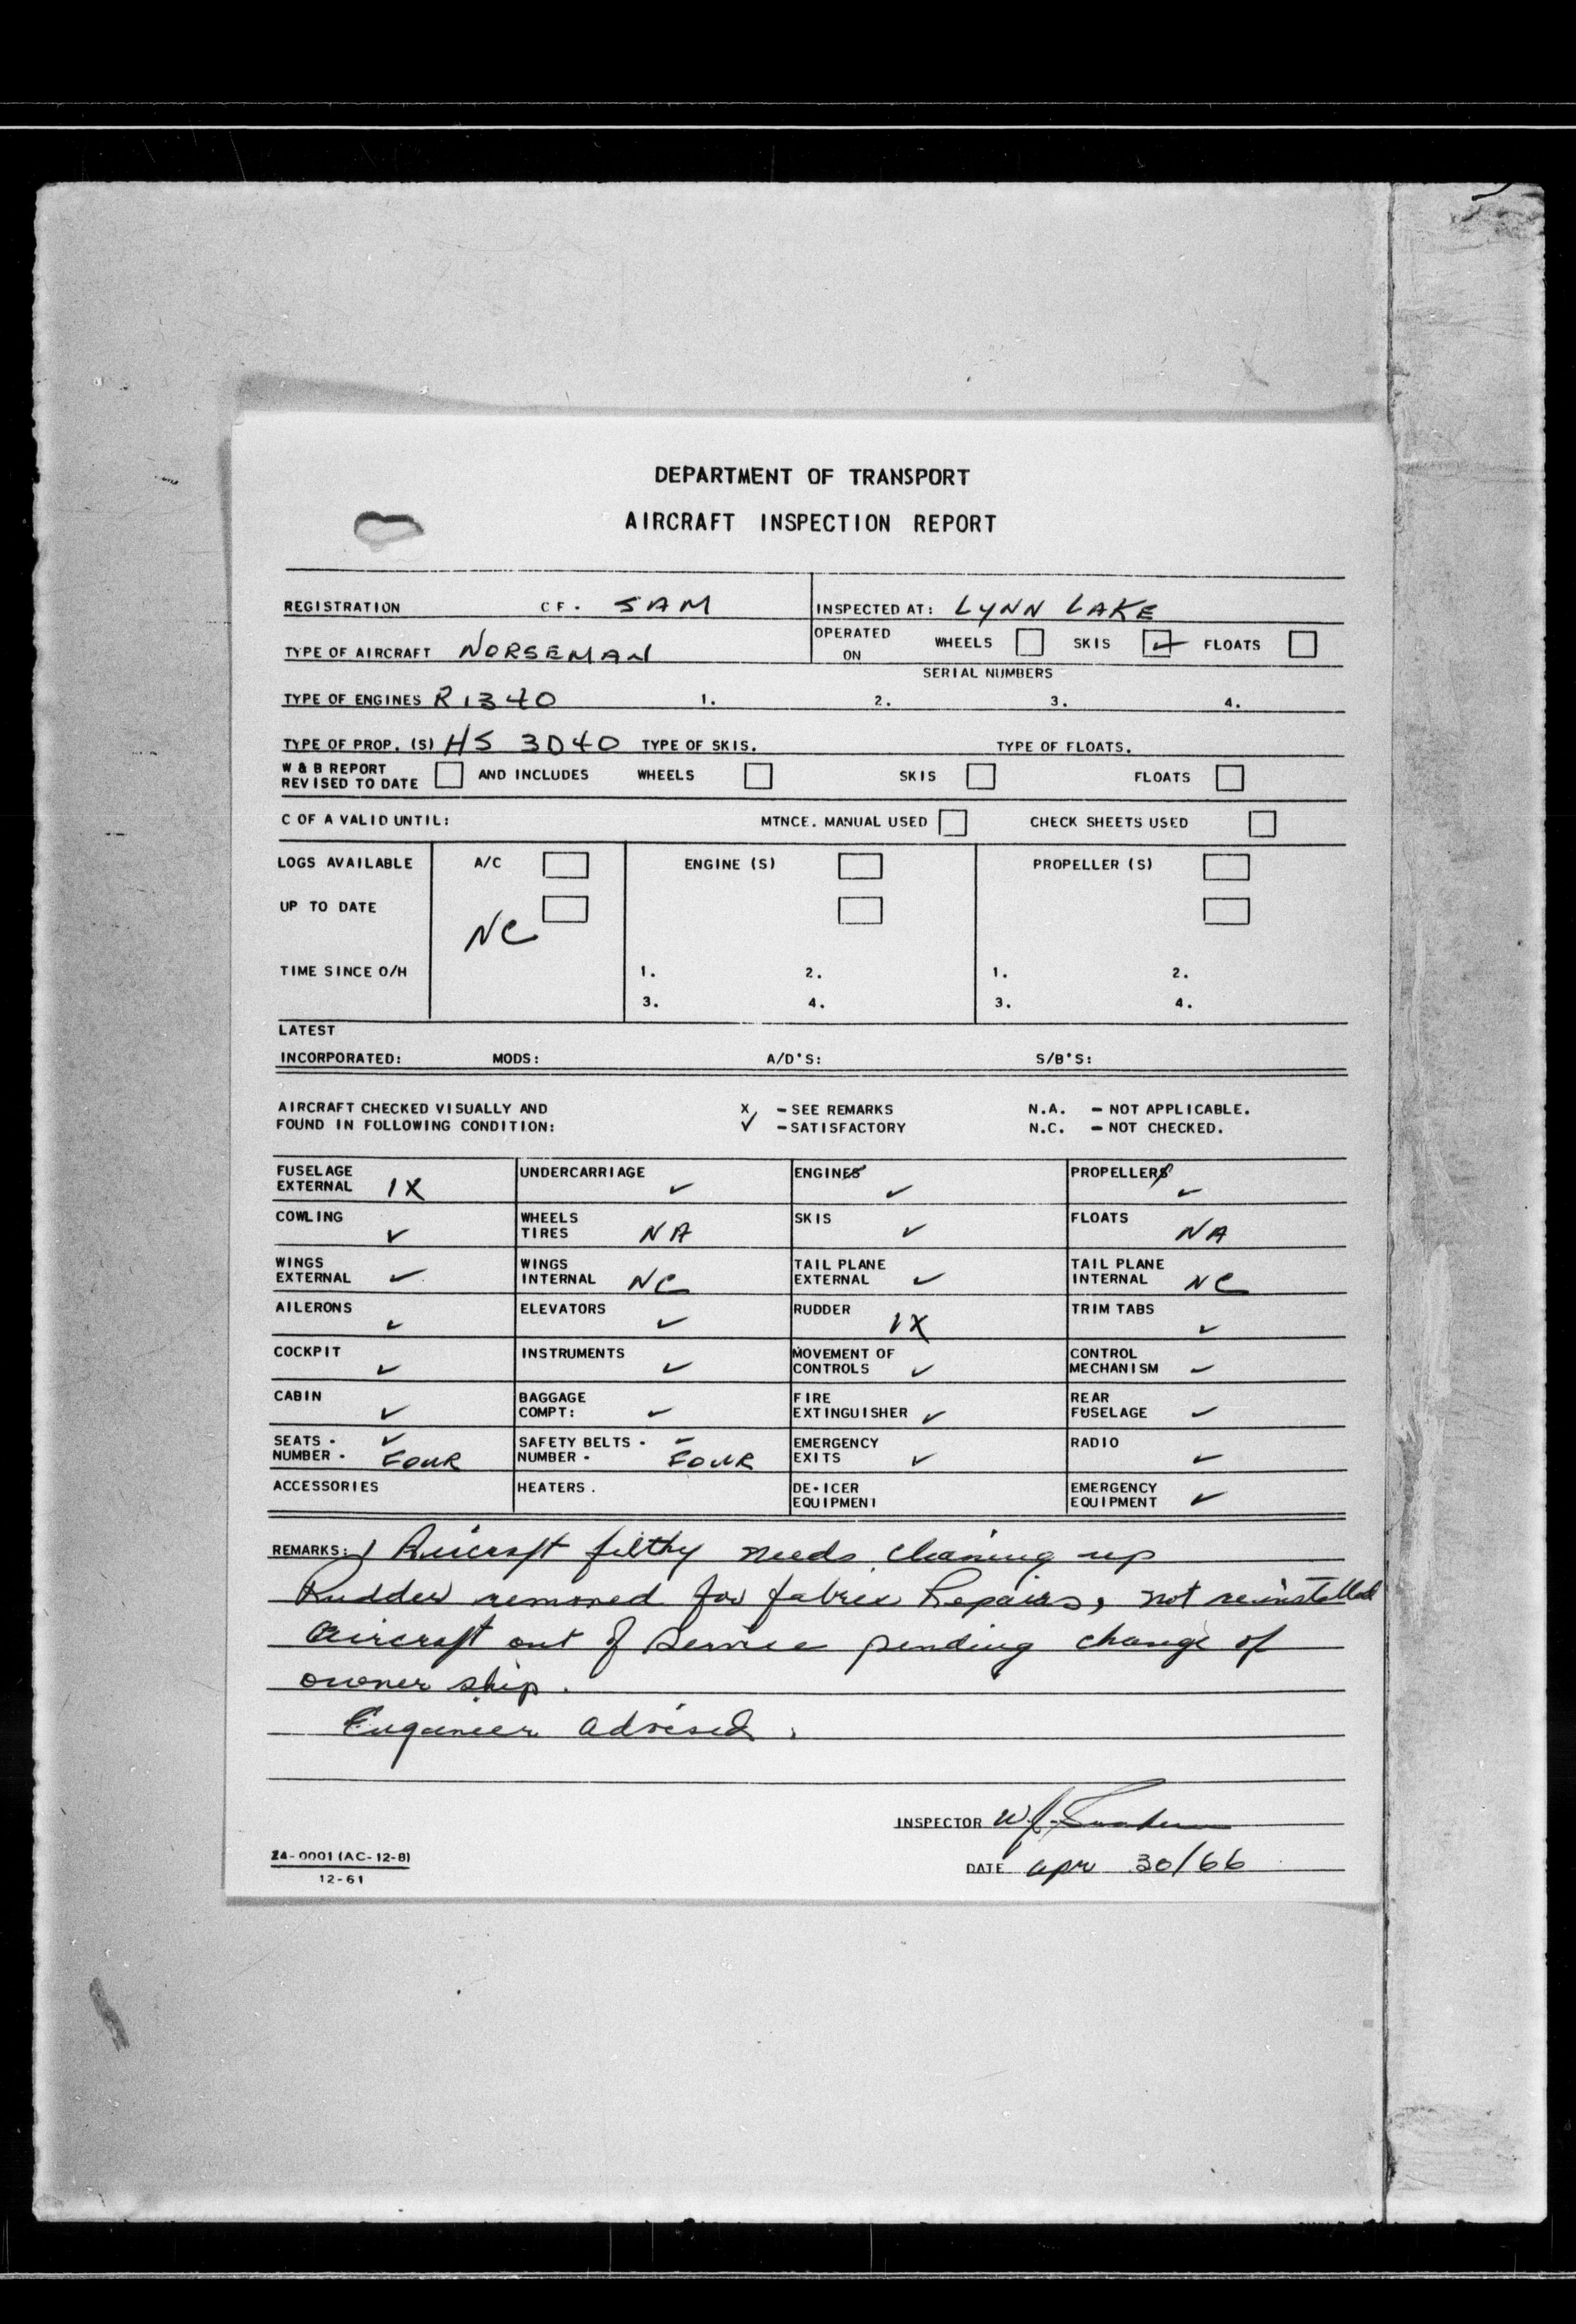 DEPARTMENT OF TRANSPORT
AIRCRAFT INSPECTION REPORT
REGISTRATION CF. SAM INSPECTED AT: LYNN LAKE
TYPE OF AIRCRAFT NORSEMAN OPERATED ON WHEELS SKIS ✓ FLOATS
SERIAL NUMBERS
TYPE OF ENGINES R1340 1. 2. 3. 4.
TYPE OF PROP. (S) HS 3D40 TYPE OF SKIS. TYPE OF FLOATS.
W & B REPORT
REVISED TO DATE AND INCLUDES WHEELS SKIS FLOATS
C OF A VALID UNTIL: MTNCE. MANUAL USED CHECK SHEETS USED
LOGS AVAILABLE A/C ENGINE (S) PROPELLER (S)
UP TO DATE
NC
TIME SINCE O/H 1. 2. 1. 2.
3. 4. 3. 4.
LATEST
INCORPORATED: MODS: A/D'S: S/B'S:
AIRCRAFT CHECKED VISUALLY AND X - SEE REMARKS N.A. - NOT APPLICABLE.
FOUND IN FOLLOWING CONDITION: ✓ - SATISFACTORY N.C. - NOT CHECKED.
FUSELAGE EXTERNAL 1X UNDERCARRIAGE ✓ ENGINES ✓ PROPELLERS ✓
COWLING ✓ WHEELS TIRES NA SKIS ✓ FLOATS NA
WINGS EXTERNAL ✓ WINGS INTERNAL NC TAIL PLANE EXTERNAL ✓ TAIL PLANE INTERNAL NC
AILERONS ✓ ELEVATORS ✓ RUDDER 1X TRIM TABS ✓
COCKPIT ✓ INSTRUMENTS ✓ MOVEMENT OF CONTROLS ✓ CONTROL MECHANISM ✓
CABIN ✓ BAGGAGE COMPT: ✓ FIRE EXTINGUISHER ✓ REAR FUSELAGE ✓
SEATS - ✓ NUMBER - FOUR SAFETY BELTS - ✓ NUMBER - FOUR EMERGENCY EXITS ✓ RADIO ✓
ACCESSORIES HEATERS. DE-ICER EQUIPMENT EMERGENCY EQUIPMENT ✓
REMARKS: 1 Aircraft filthy needs cleaning up
Rudder removed for fabric Repairs, not reinstalled
Aircraft out of service pending change of
owner ship.
Engineer advised.
INSPECTOR W
24-0001 (AC-12-8)
12-61
DATE Apr 30/66